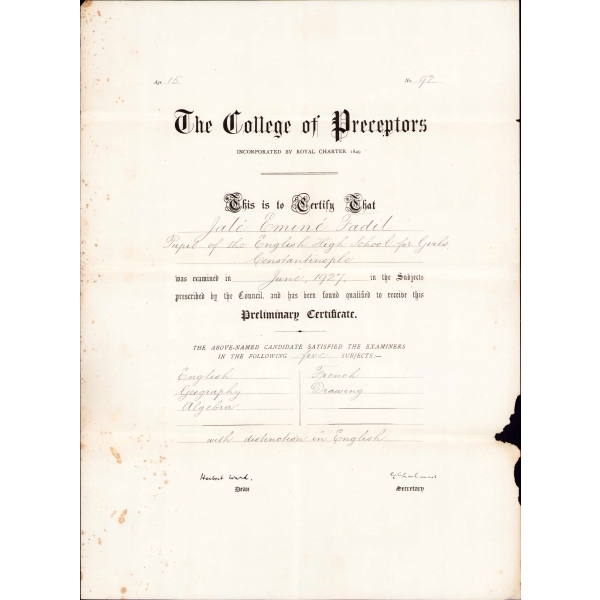 Age 15. No. 92
The College of Preceptors
INCORPORATED BY ROYAL CHARTER 1849
This is to Certify That
Jalé Eminé Fadil
Pupil of the English High School for Girls
Constantinople
was examined in June, 1927, in the Subjects
prescribed by the Council, and has been found qualified to receive this
Preliminary Certificate.
THE ABOVE-NAMED CANDIDATE SATISFIED THE EXAMINERS
IN THE FOLLOWING five SUBJECTS:—
English French
Geography Drawing
Algebra
with distinction in English
Herbert Ward.
Dean Secretary